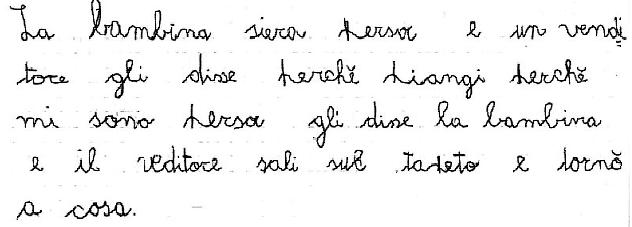 La bambina siera persa e un vendi
tore gli disse perchè piangi perchè
mi sono persa gli disse la bambina
e il veditore salì sul tapeto e tornò
a casa.